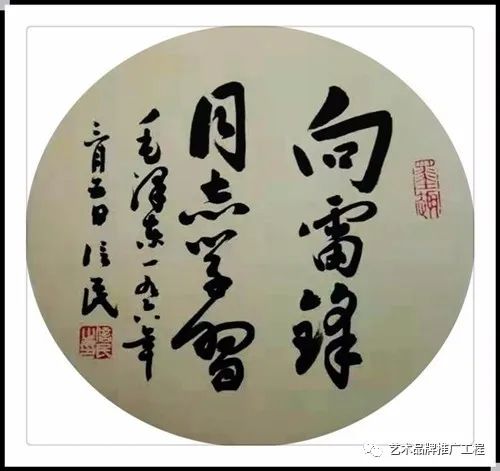 向雷锋
同志学習
毛澤东一九六年
三月五日 信民
艺术品牌推广工程